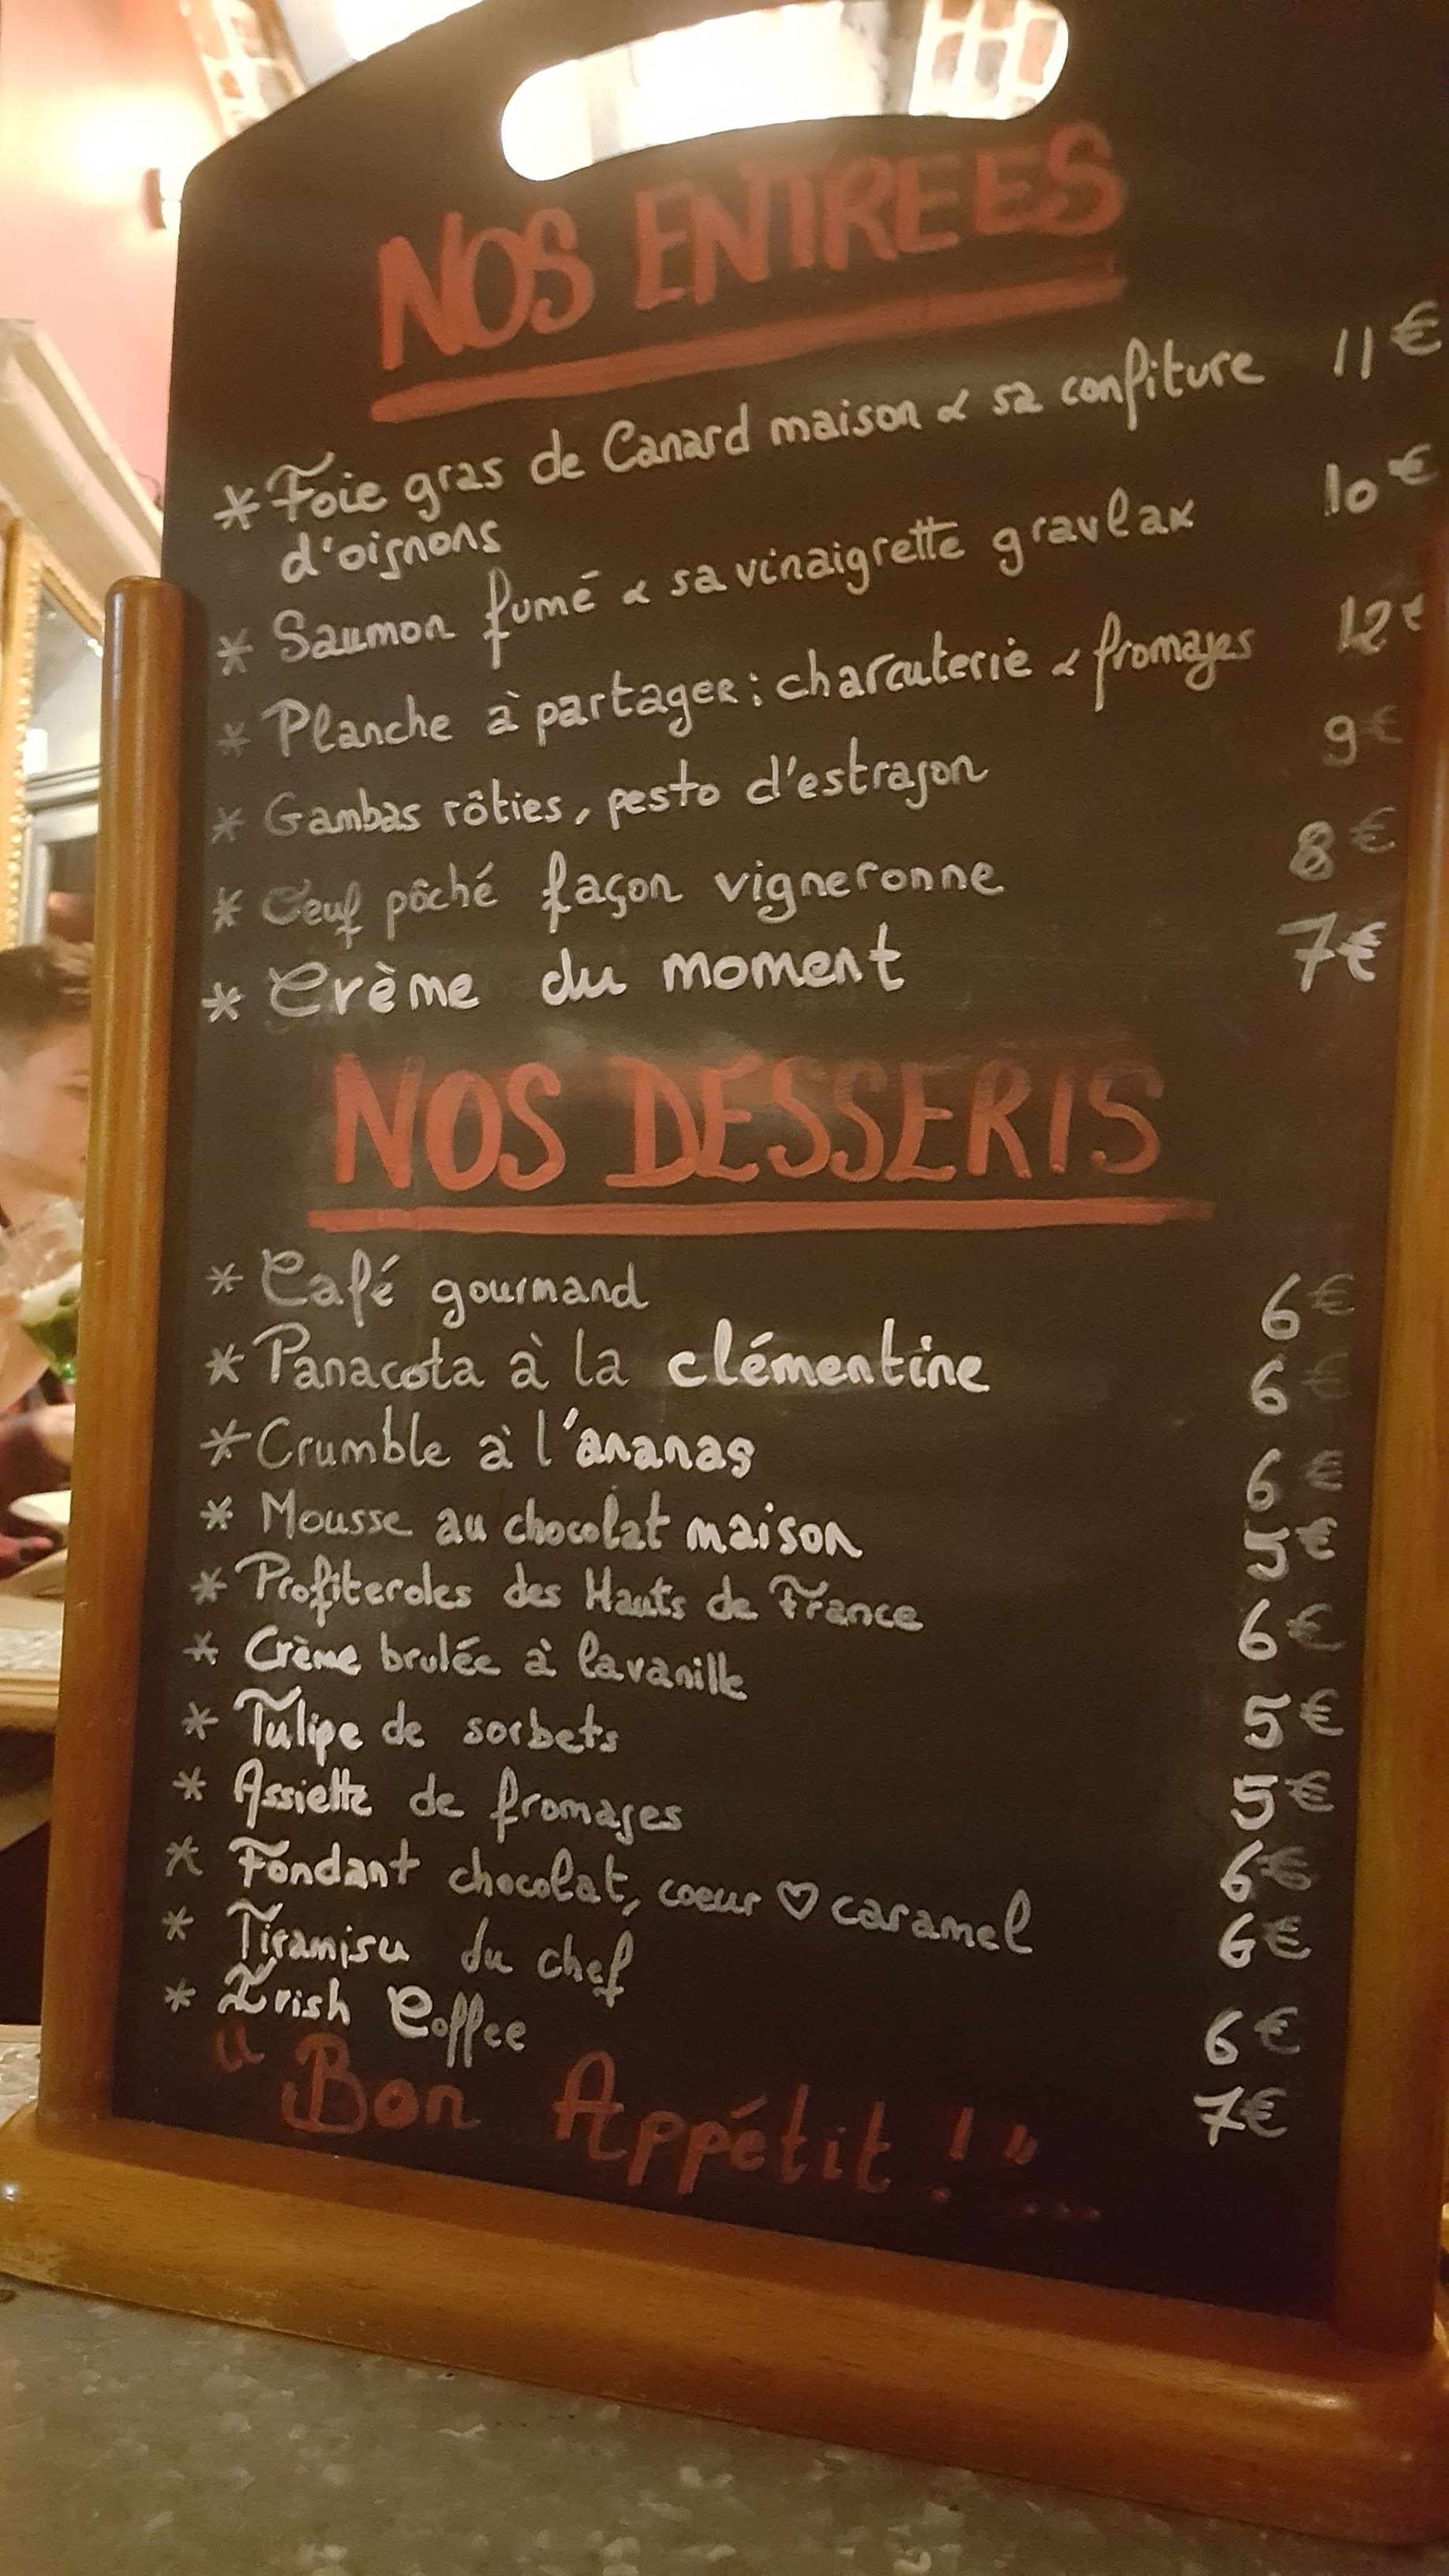 NOS ENTREES
* Foie gras de Canard maison & sa confiture 11€
d'oignons
* Saumon fumé & sa vinaigrette gravlax 10€
* Planche à partager : charcuterie & fromages 12€
* Gambas rôties, pesto d'estragon 9€
* Oeuf pôché façon vigneronne 8€
* Crème du moment 7€
NOS DESSERTS
* Café gourmand 6€
* Panacota à la clémentine 6€
* Crumble à l'ananas 6€
* Mousse au chocolat maison 5€
* Profiteroles des Hauts de France 6€
* Crème brulée à la vanille 5€
* Tulipe de sorbets 5€
* Assiette de fromages 6€
* Fondant chocolat, coeur ♡ caramel 6€
* Tiramisu du chef 6€
* Irish Coffee 7€
" Bon Appétit ! " ...